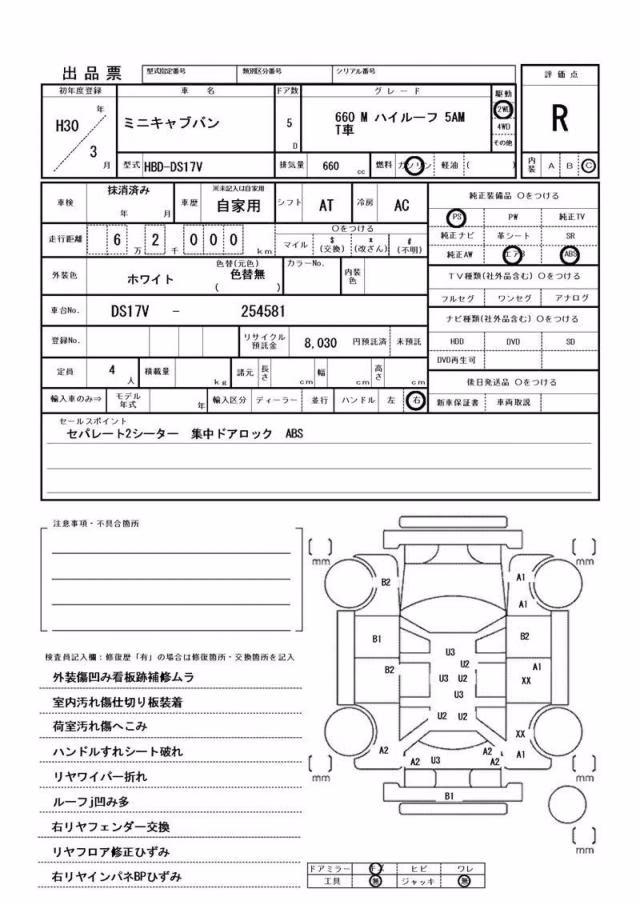 出品票 型式指定番号 類別区分番号 シリアル番号 評価点
初年度登録 車名 ドア数 グレード 駆動
H30 年 3 月 ミニキャブバン 5 D 660 M ハイルーフ 5AM 2WD R
T車 4WD
その他
型式 HBD-DS17V 排気量 660 cc 燃料 ガソリン 軽油 ( ) 内装 A B C
車検 抹消済み 年 月 車歴 ※未記入は自家用 自家用 シフト AT 冷房 AC 純正装備品 〇をつける
PS PW 純正TV
走行距離 6 万 2 千 000 km 〇をつける マイル $(交換) x(改ざん) #(不明)
純正ナビ 革シート SR
純正AW エアB ABS
外装色 ホワイト 色替(元色) 色替無 ( ) カラーNo. 内装色
TV種類(社外品含む) 〇をつける
フルセグ ワンセグ アナログ
車台No. DS17V - 254581
ナビ種類(社外品含む) 〇をつける
登録No. リサイクル預託金 8,030 円預託済 未預託
HDD DVD SD
DVD再生可
定員 4 人 積載量 kg 諸元 長さ cm 幅 cm 高さ cm
後日発送品 〇をつける
輸入車のみ⇒ モデル年式 年 輸入区分 ディーラー 並行 ハンドル 左 右 新車保証書 車両取説
セールスポイント
セパレート2シーター 集中ドアロック ABS
注意事項・不具合箇所
検査員記入欄:修復歴「有」の場合は修復箇所・交換箇所を記入
外装傷凹み看板跡補修ムラ
室内汚れ傷仕切り板装着
荷室汚れ傷へこみ
ハンドルすれシート破れ
リヤワイパー折れ
ルーフj凹み多
右リヤフェンダー交換
リヤフロア修正ひずみ
右リヤインパネBPひずみ
mm mm
B2 A1
A1
B1 B2
U3
B2 U2 A1
U3 U2 XX
U3
U2 U2
XX
A2 A2 U3 A2 A2 A1
mm mm
B1
mm
ドアミラー ヒビ ワレ
工具 無 ジャッキ 無